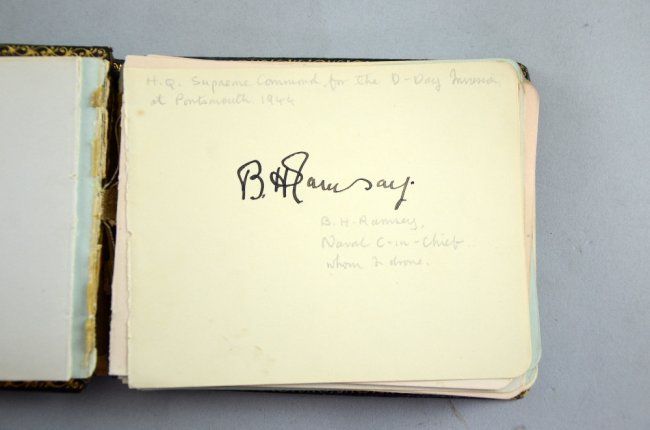 H.Q. Supreme Command, for the D-Day Invasion,
at Portsmouth 1944
B. H Ramsay.
B. H. Ramsey,
Naval C-in-Chief
whom I drove.